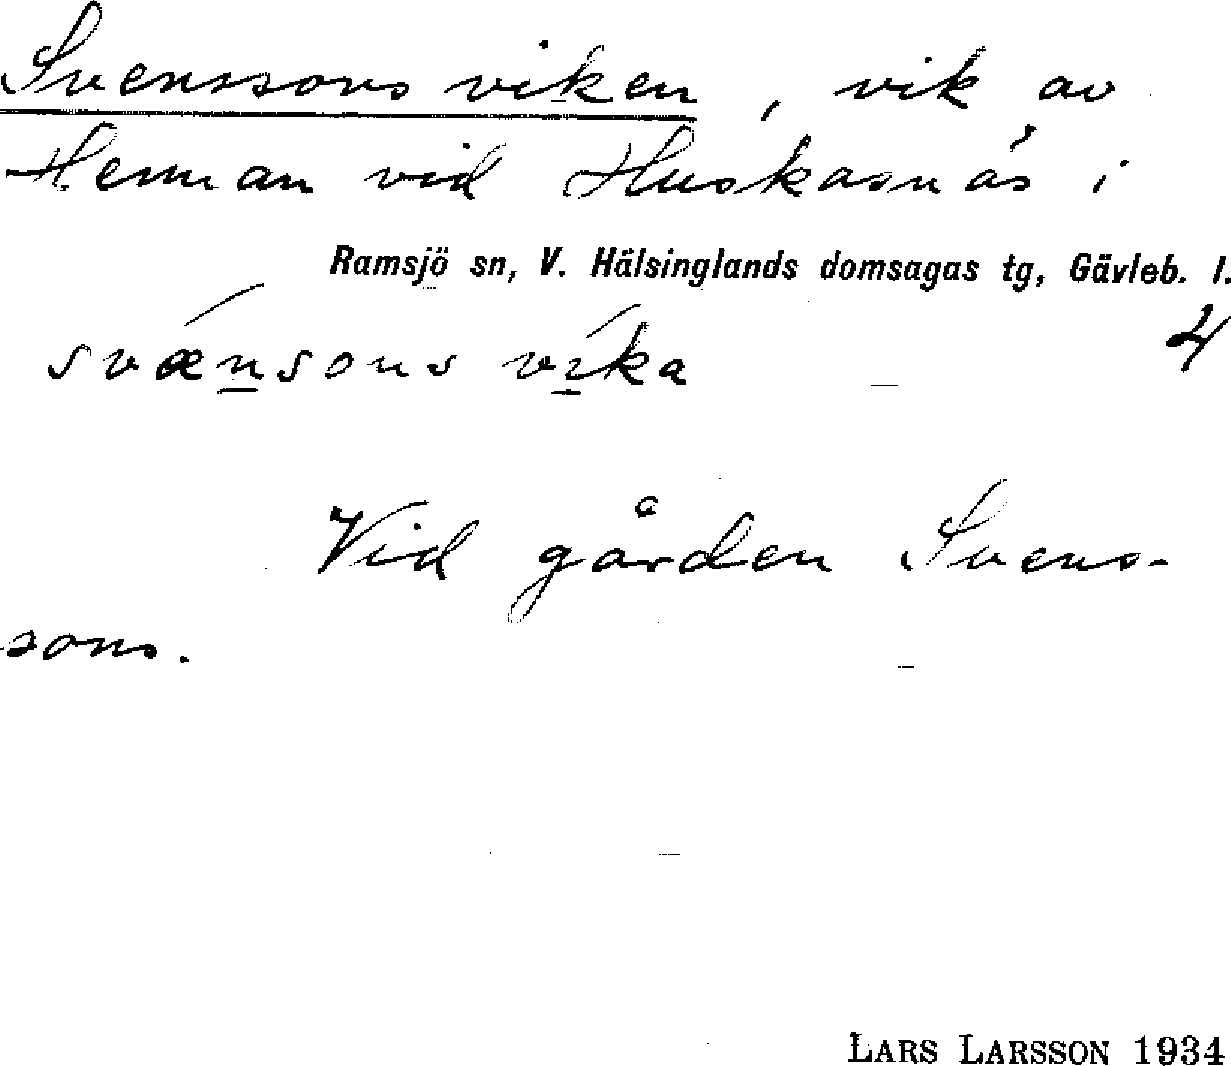 Svenssonsviken, vik av
Hennan vid Huskasnäs i
Ramsjö sn, V. Hälsinglands domsagas tg, Gävleb. l.
4
svǽnsons víka
Vid gården Svens-
sons.
LARS LARSSON 1934